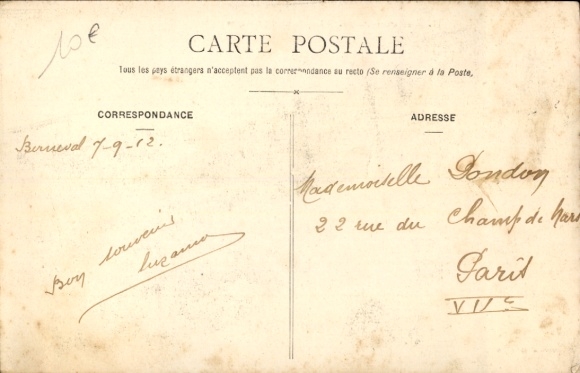 10€
CARTE POSTALE
Tous les pays étrangers n'acceptent pas la correspondance au recto (Se renseigner à la Poste,
CORRESPONDANCE
ADRESSE
Berneval 7-9-12.
Bon souvenir
Mademoiselle Dondon
22 rue du Champ de Mars
Paris
VIIe